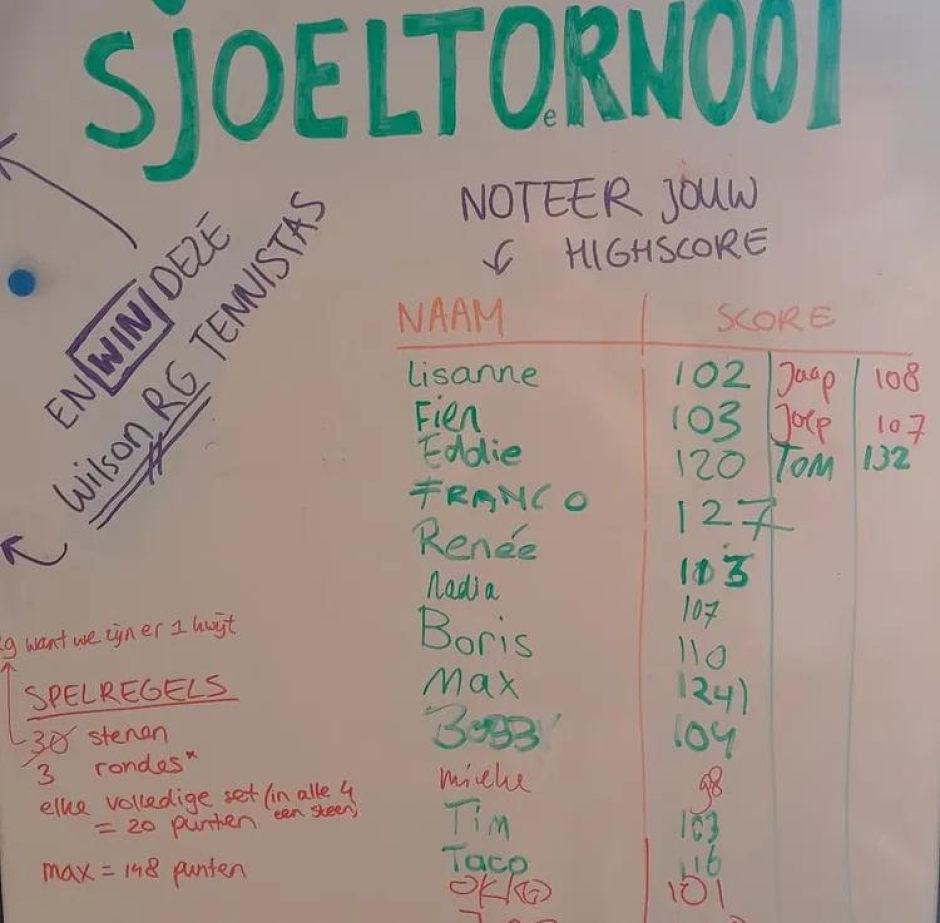 SJOELTOeRNOOI
EN WIN DEZE
Wilson RG TENNISTAS
NOTEER JOUW
HIGHSCORE
NAAM SCORE
Lisanne 102 Jaap 108
Fien 103 Joep 107
Eddie 120 TOM 132
FRANCO 127
Renée 103
Nadia 107
Boris 110
Max 124
104
mieke 98
Tim 103
Taco 116
101
want we zijn er 1 kwijt
SPELREGELS
30 stenen
3 rondes*
elke volledige set (in alle 4
een steen)
= 20 punten
max = 148 punten